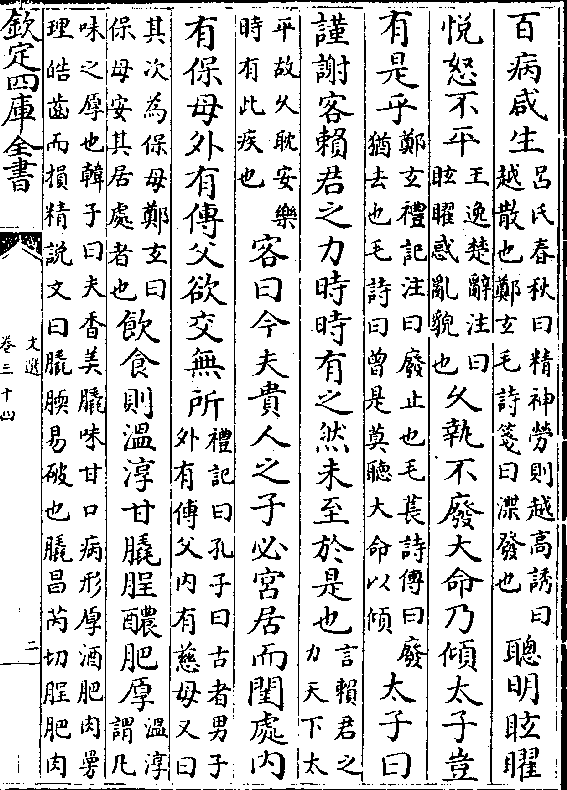 百病咸生呂氏春秋曰精神勞則越高誘曰越散也鄭玄毛詩箋曰渫發也聰明眩曜
悅怒不平王逸楚辭注曰眩曜惑亂貌也久執不廢大命乃傾太子豈
有是乎鄭玄禮記注曰廢止也毛萇詩傳曰廢猶去也毛詩曰曾是莫聽大命以傾太子曰
謹謝客賴君之力時時有之然未至於是也言賴君之力天下太
平故久耽安樂時有此疾也客曰今夫貴人之子必宮居而閨處內
有保母外有傅父欲交無所禮記曰孔子曰古者男子外有傅父內有慈母又曰
其次為保母鄭玄曰保母安其居處者也飲食則溫淳甘膬脭醲肥厚溫淳謂凡
味之厚也韓子曰夫香美膬味甘口病形厚酒肥肉曼理皓齒而損精說文曰膬腝易破也膬昌芮切脭肥肉
欽定四庫全書
文選
卷三十四
二